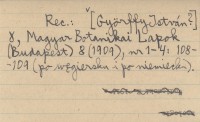 Rec.: [Györffy István?]
8, Magyar Botanikai Lapok
(Budapest) 8 (1909), nr 1-4: 108-
-109 (po węgiersku i po niemiecku).